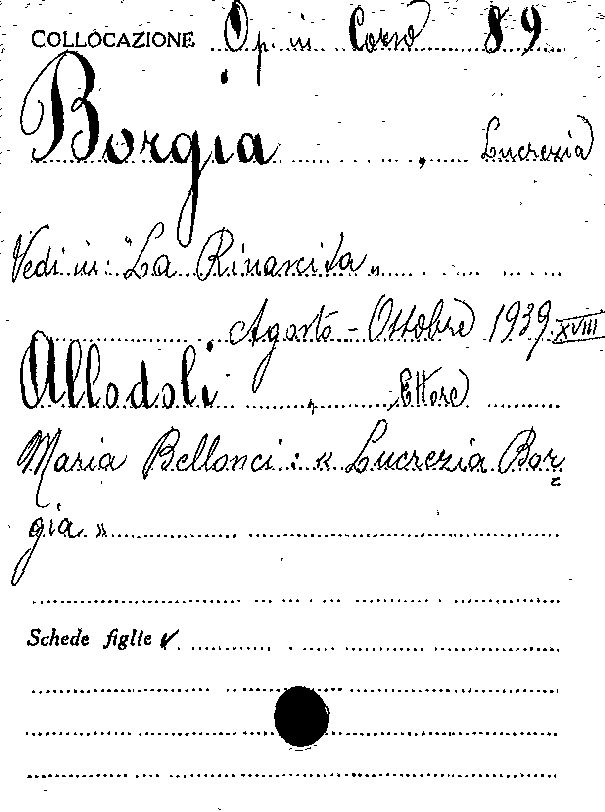 COLLOCAZIONE Op. in Corso 89
Borgia, Lucrezia
Vedi in: "La Rinascita„
Agosto - Ottobre 1939 XVIII
Allodoli, Ettore
Maria Bellonci: « Lucrezia Bor=
gia »
Schede figlie ✓